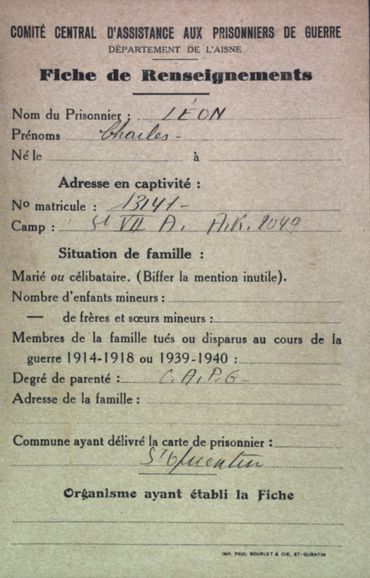 COMITÉ CENTRAL D'ASSISTANCE AUX PRISONNIERS DE GUERRE
DÉPARTEMENT DE L'AISNE
Fiche de Renseignements
Nom du Prisonnier : LÉON
Prénoms Charles -
Né le à
Adresse en captivité :
No matricule : 13141 -
Camp : St VII A. A.K. 2049
Situation de famille :
Marié ou célibataire. (Biffer la mention inutile).
Nombre d'enfants mineurs :
— de frères et sœurs mineurs :
Membres de la famille tués ou disparus au cours de la
guerre 1914-1918 ou 1939-1940 :
Degré de parenté : C.A.P.G -
Adresse de la famille :
Commune ayant délivré la carte de prisonnier :
St Quentin
Organisme ayant établi la Fiche
IMP. PAUL BOURLET & CIE, ST-QUENTIN